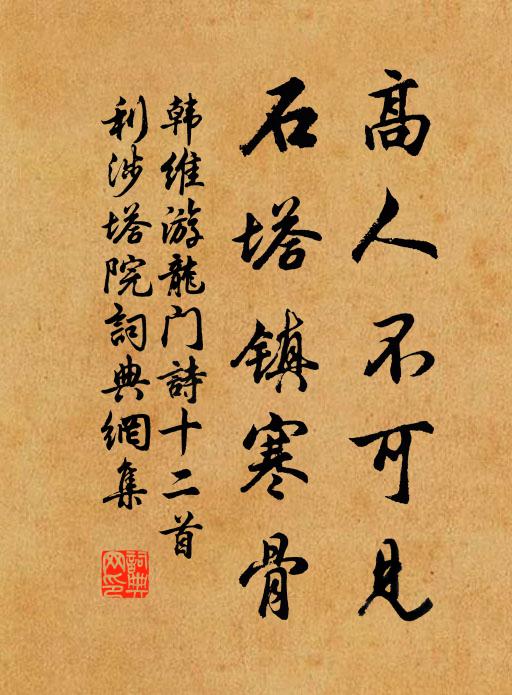 高人不可見
石塔镇寒骨
韩维游龍门詩十二首
利涉塔院詞典網集
詞典网印